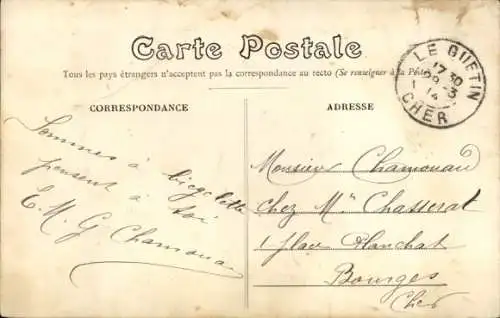 Carte Postale
Tous les pays étrangers n'acceptent pas la correspondance au recto (Se renseigner à la Poste)
LE GUETIN
17 30
CHER
CORRESPONDANCE
Sommes à bicyclette
pensent à toi
E. M. G Chamouau
ADRESSE
Monsieur Chamouau
chez Mr Chasserat
1 place Planchat
Bourges
Cher